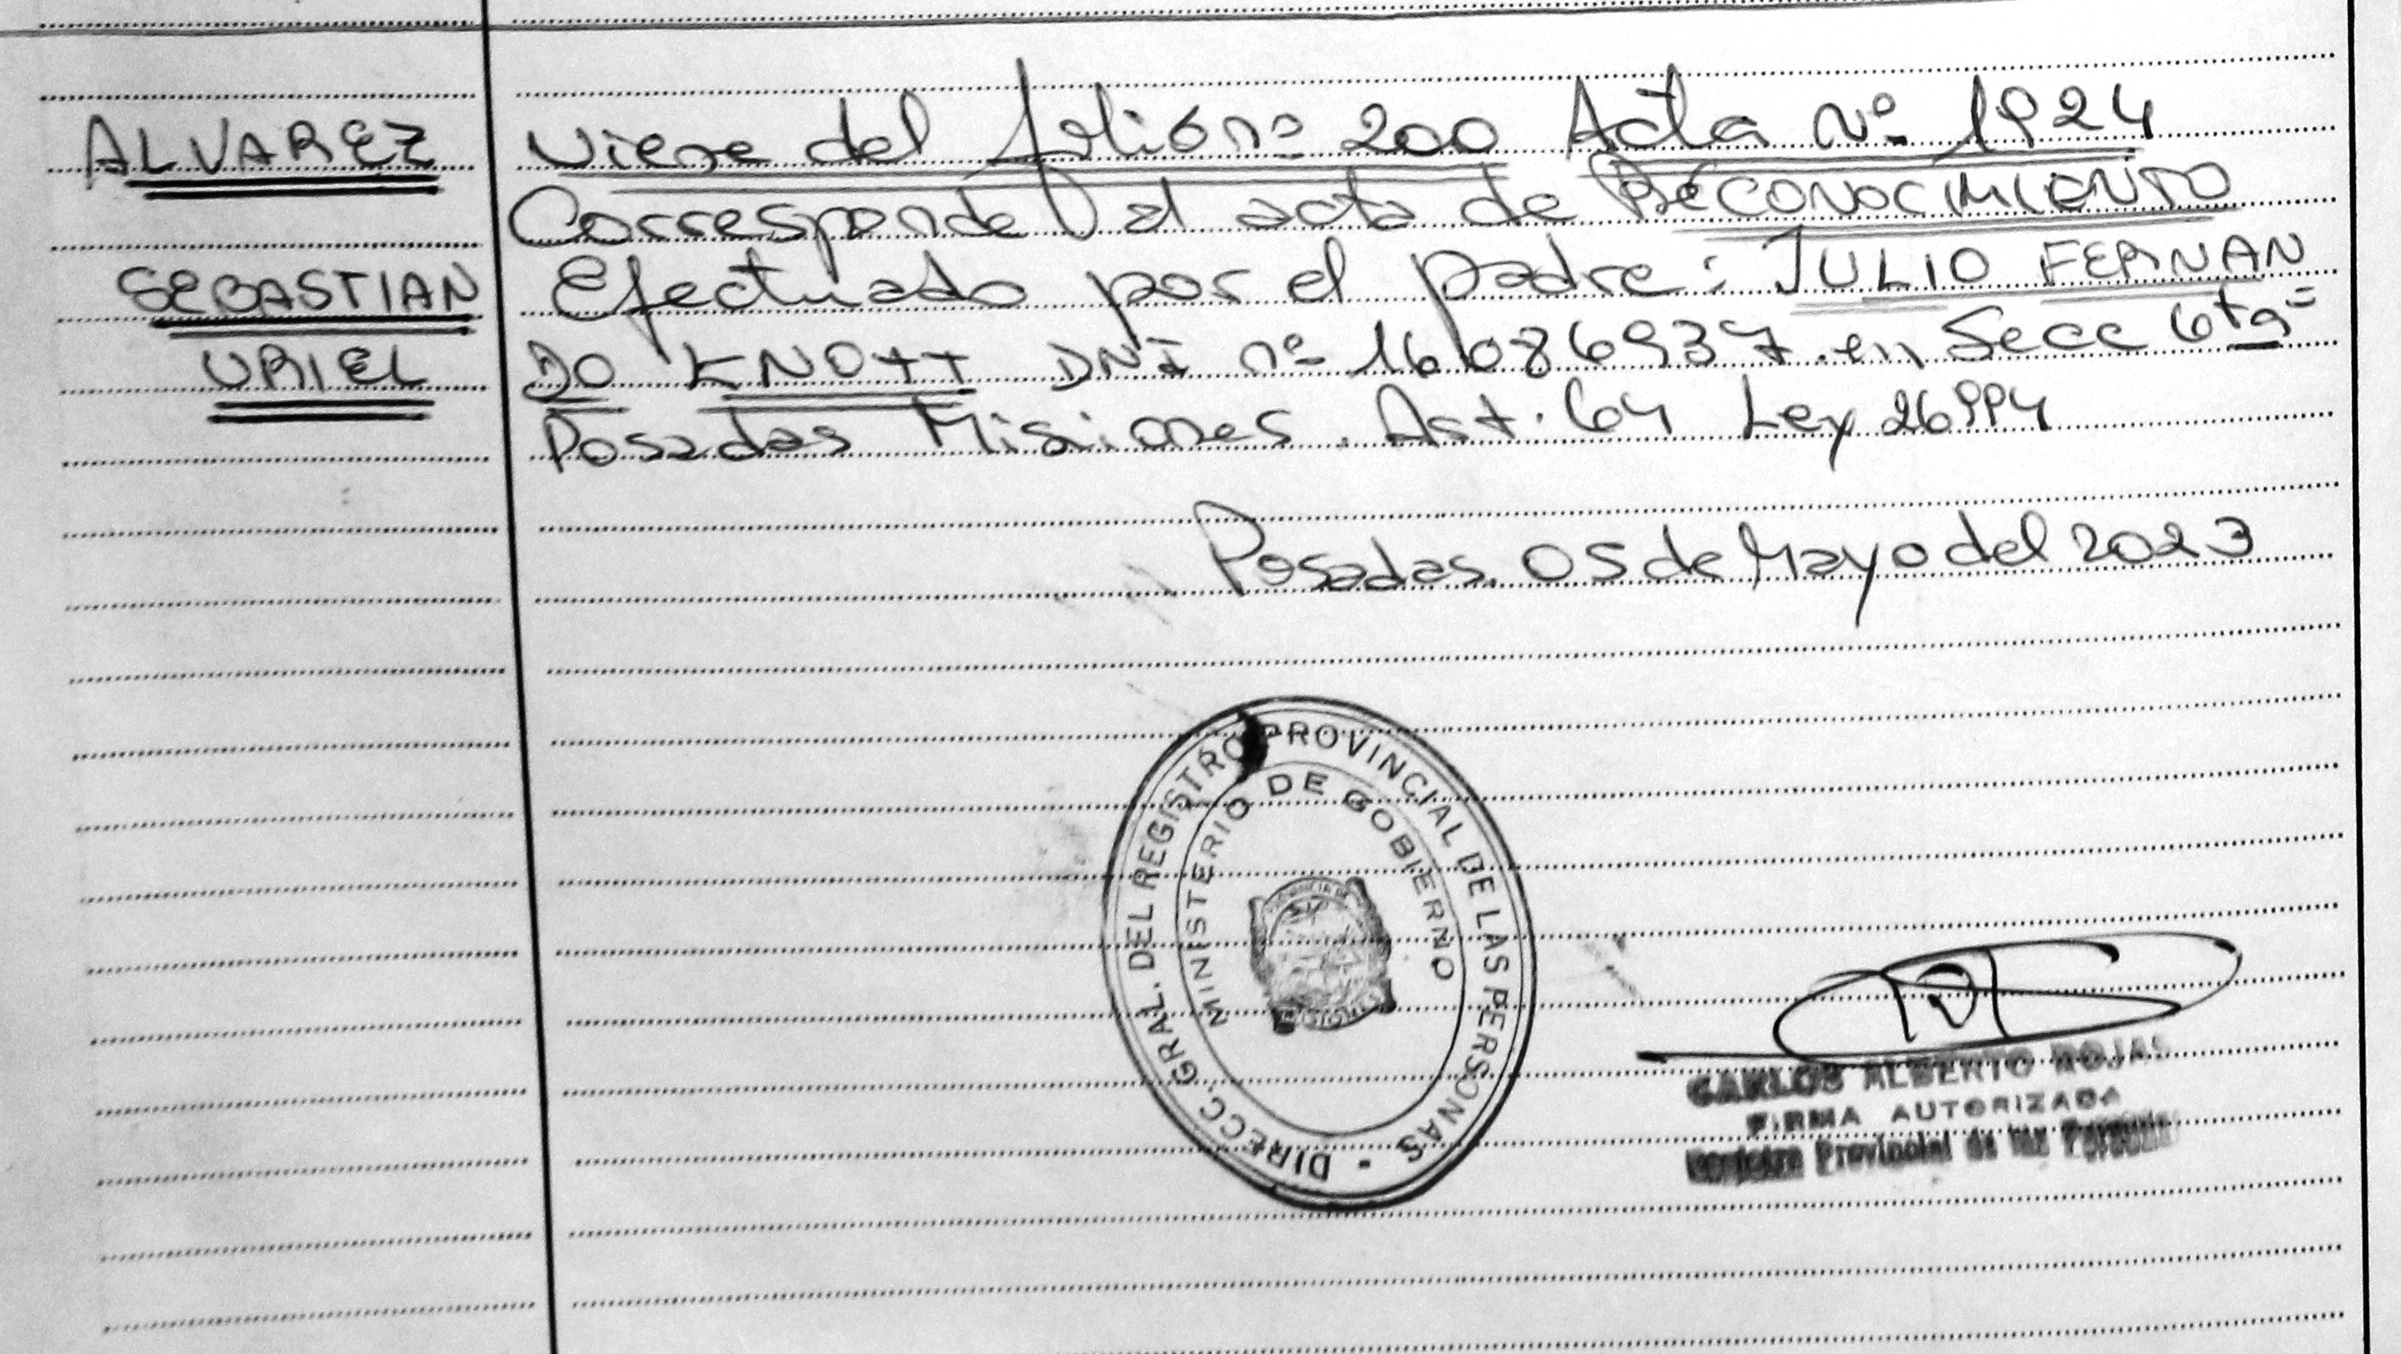 ALVAREZ
SEBASTIAN
URIEL
Viene del folio nº 200 Acta Nº 1924
Corresponde al acta de RECONOCIMIENTO
Efectuado por el padre: JULIO FERNAN
DO KNOTT DNI nº 16086937 en Secc 6ta=
Posadas Misiones. Art. 64 Ley 26994
Posadas, 05 de Mayo del 2023
DIRECC. GRAL. DEL REGISTRO PROVINCIAL DE LAS PERSONAS -
MINISTERIO DE GOBIERNO
CARLOS ALBERTO ROJAS
FIRMA AUTORIZADA
Registro Provincial de las Personas